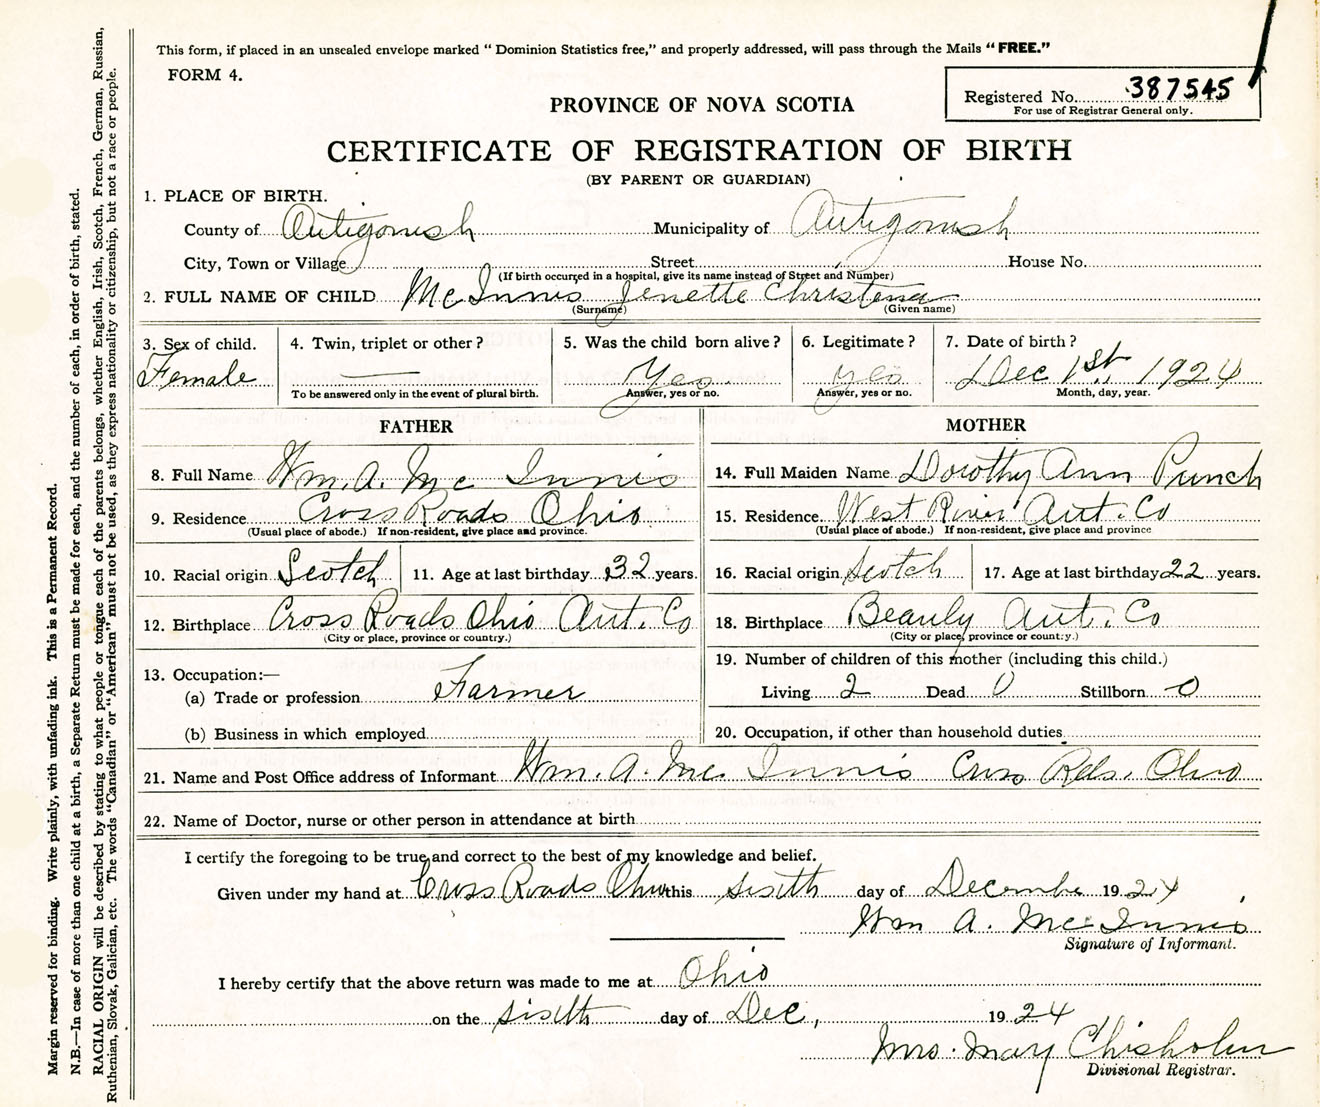 This form, if placed in an unsealed envelope marked "Dominion Statistics free," and properly addressed, will pass through the Mails "FREE."
FORM 4.
Registered No. 387545
For use of Registrar General only.
PROVINCE OF NOVA SCOTIA
CERTIFICATE OF REGISTRATION OF BIRTH
(BY PARENT OR GUARDIAN)
1. PLACE OF BIRTH.
County of Antigonish Municipality of Antigonish
City, Town or Village Street House No.
(If birth occurred in a hospital, give its name instead of Street and Number)
2. FULL NAME OF CHILD McInnis Jenette Christena
(Surname) (Given name)
3. Sex of child. 4. Twin, triplet or other? 5. Was the child born alive? 6. Legitimate? 7. Date of birth?
Female — Yes yes Dec 1st, 1924
To be answered only in the event of plural birth. Answer, yes or no. Answer, yes or no. Month, day, year.
FATHER
8. Full Name Wm. A. Mc Innis
9. Residence Cross Roads Ohio
(Usual place of abode.) If non-resident, give place and province.
10. Racial origin Scotch 11. Age at last birthday 32 years.
12. Birthplace Cross Roads Ohio Ant. Co
(City or place, province or country.)
13. Occupation:—
(a) Trade or profession Farmer
(b) Business in which employed
MOTHER
14. Full Maiden Name Dorothy Ann Punch
15. Residence West River Ant. Co
(Usual place of abode.) If non-resident, give place and province
16. Racial origin Scotch 17. Age at last birthday 22 years.
18. Birthplace Beauly Ant. Co
(City or place, province or country.)
19. Number of children of this mother (including this child.)
Living 2 Dead 0 Stillborn 0
20. Occupation, if other than household duties
21. Name and Post Office address of Informant Wm. A. Mc Innis Cross Rds. Ohio
22. Name of Doctor, nurse or other person in attendance at birth
I certify the foregoing to be true and correct to the best of my knowledge and belief.
Given under my hand at Cross Roads Ohio this sixth day of December 1924
Wm A. Mc Innis
Signature of Informant.
I hereby certify that the above return was made to me at Ohio
on the sixth day of Dec, 1924
Mrs. May Chisholm
Divisional Registrar.
Margin reserved for binding. Write plainly, with unfading ink. This is a Permanent Record.
N.B.—In case of more than one child at a birth, a Separate Return must be made for each, and the number of each, in order of birth, stated.
RACIAL ORIGIN will be described by stating to what people or tongue each of the parents belongs, whether English, Irish, Scotch, French, German, Russian,
Ruthenian, Slovak, Galician, etc. The words "Canadian" or "American" must not be used, as they express nationality or citizenship, but not a race or people.